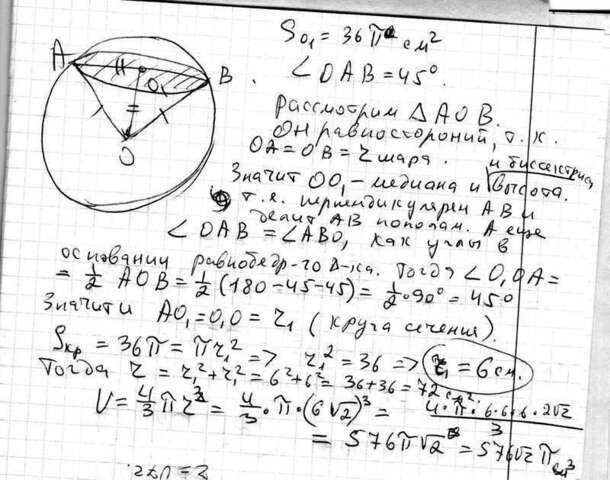 S₀₁ = 36π см²
∠OAB = 45°.
A
B
O₁
O
Рассмотрим △AOB.
Он равносторонний, т.к.
OA = OB = r шара.
и биссектриса
Значит OO₁ - медиана и высота.
т.е. перпендикулярен AB и
делит AB пополам. А еще
∠OAB = ∠ABO, как углы в
основании равнобедр-го Δ-ка. Тогда ∠O₁OA =
= 1/2 AOB = 1/2 (180-45-45) = 1/2 · 90° = 45°
Значит и AO₁ = O₁O = r₁ (круга сечения).
Sкр = 36π = πr₁² => r₁² = 36 => r₁ = 6 см.
Тогда r = r₁² + r₁² = 6² + 6² = 36 + 36 = 72 см².
V = 4/3 πr³ = 4/3 · π · (6√2)³ = 4·π·6·6·6·2√2/3
= 576π√2 = 576√2 π см³